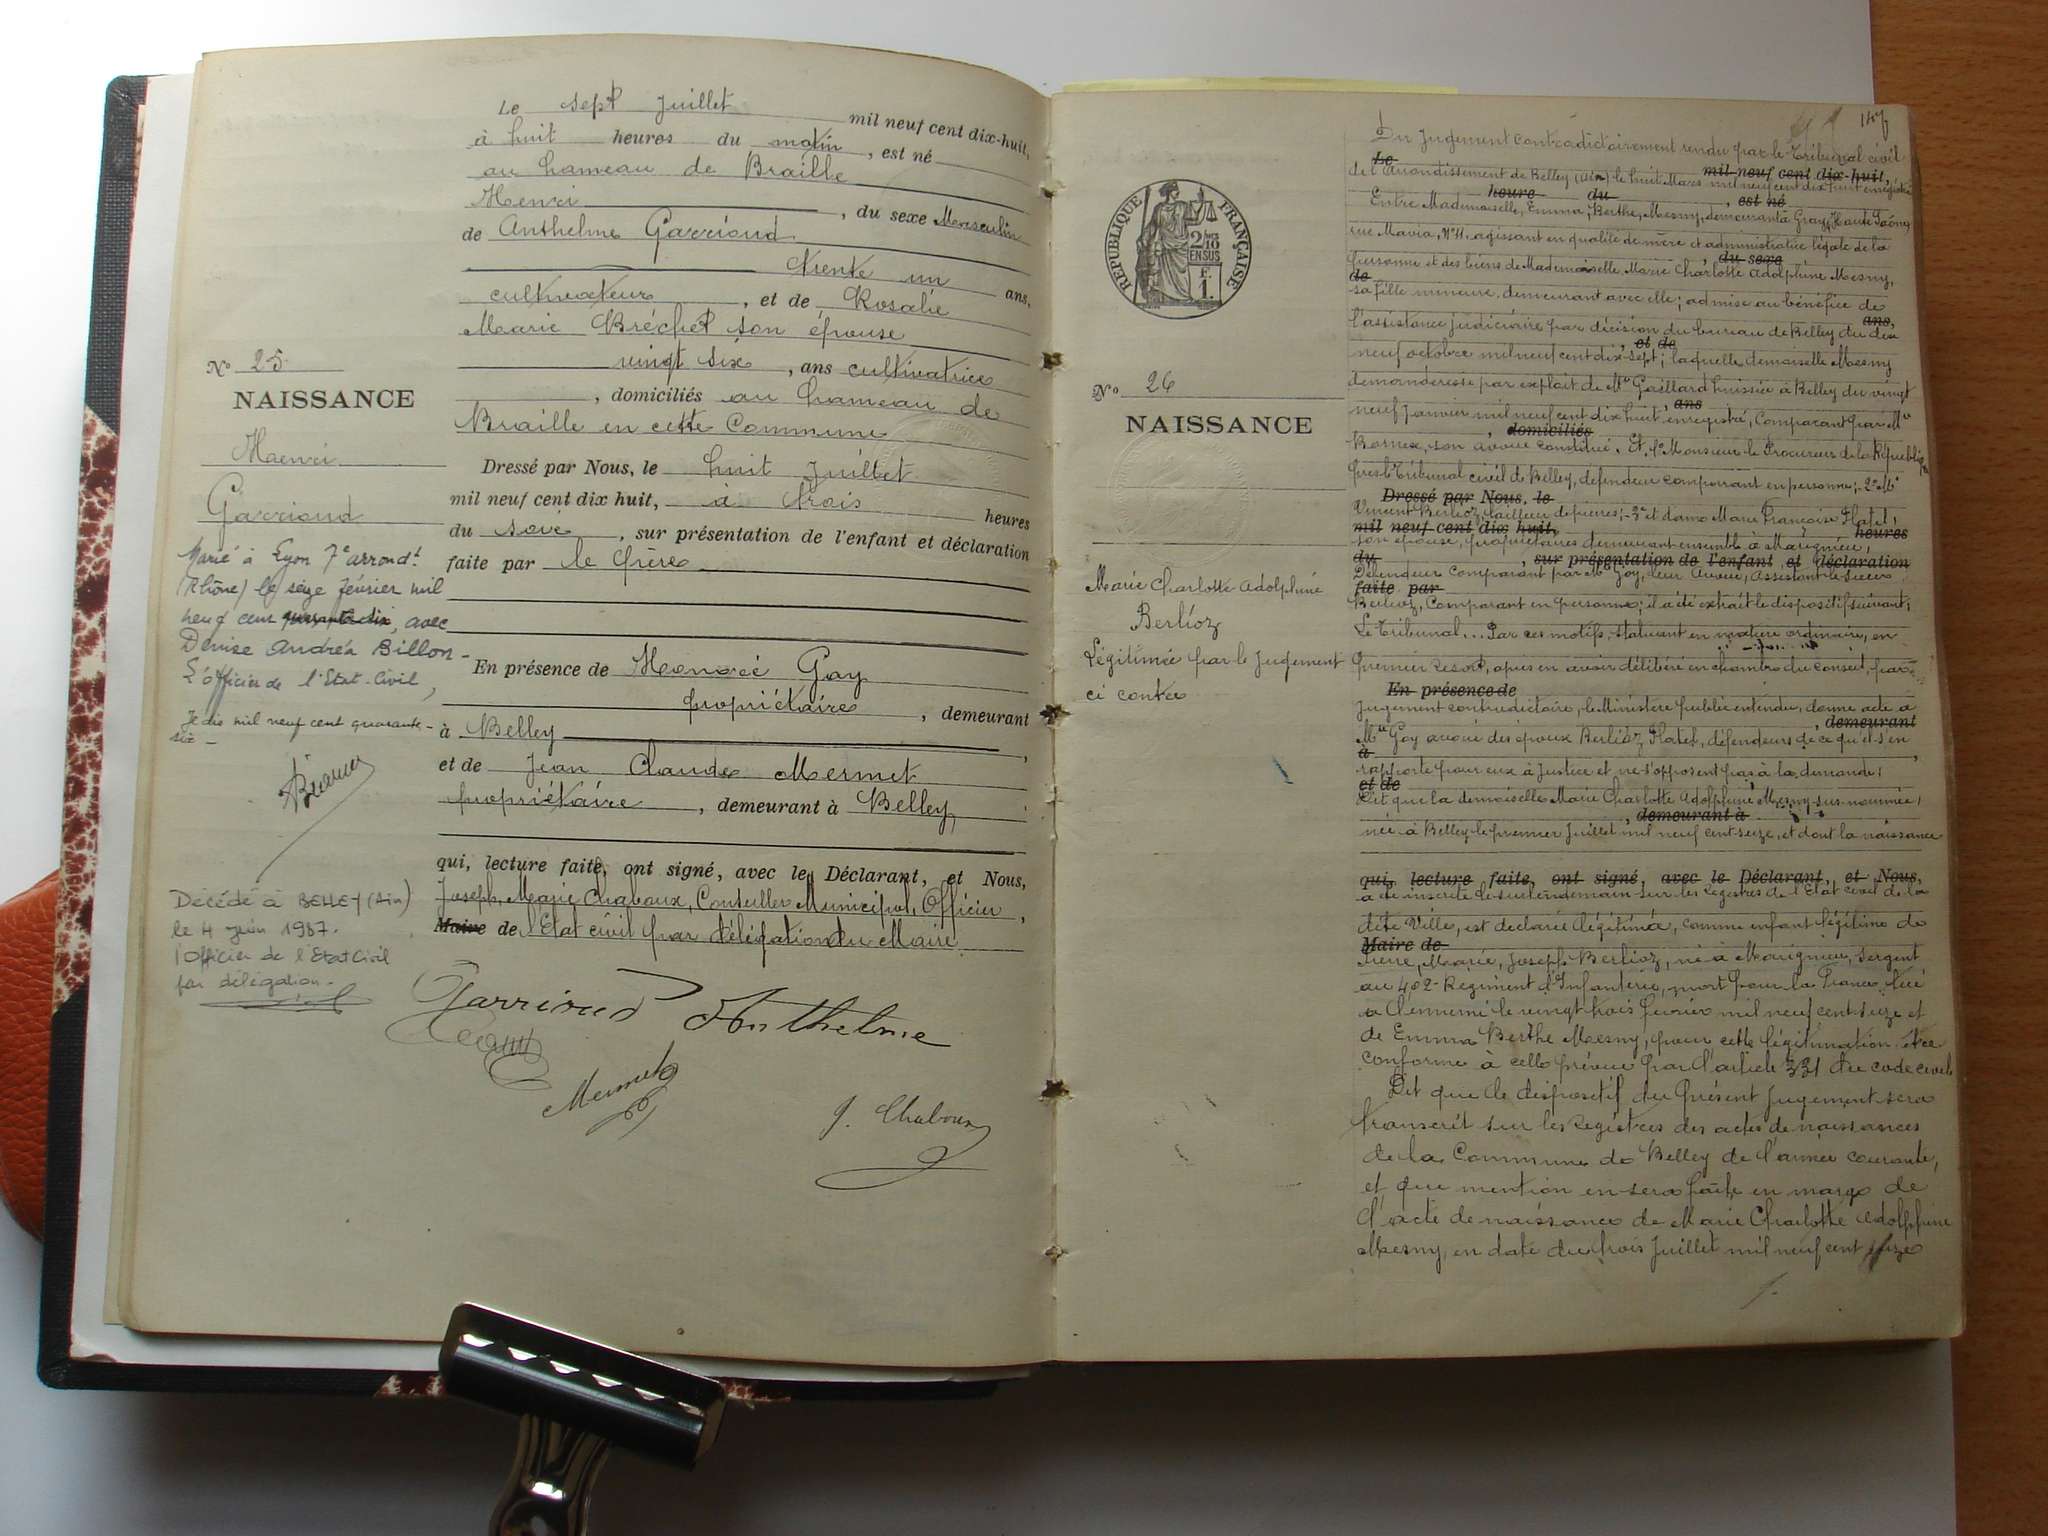 Le sept Juillet mil neuf cent dix-huit,
à huit heures du matin, est né
au hameau de Braille
Henri, du sexe Masculin
de Anthelme Garrioud
trente un ans,
cultivateur, et de Rosalie
Marie Bréchet son épouse
vingt six, ans cultivatrice
, domiciliés au hameau de
Braille en cette Commune
Dressé par Nous, le huit Juillet
mil neuf cent dix huit, à trois heures
du soir, sur présentation de l'enfant et déclaration
faite par le père
En présence de Honoré Gay
propriétaire, demeurant
à Belley,
et de Jean Claude Mermet
propriétaire, demeurant à Belley
qui, lecture faite, ont signé, avec le Déclarant, et Nous,
Joseph, Marie Chaboux, Conseiller Municipal, Officier,
Maire de l'Etat civil par délégation du Maire
Garrioud Anthelme
Mermet
J. Chaboux
N° 25
NAISSANCE
Henri
Garrioud
Marié à Lyon 7e arrondt
(Rhône) le seize février mil
neuf cent quarante dix, avec
Denise Andréa Billon -
L'officier de l'Etat-Civil,
Je dis mil neuf cent quarante-
six -
Décédé à BELLEY (Ain)
le 4 juin 1987.
l'Officier de l'Etat Civil
par délégation.
RÉPUBLIQUE FRANÇAISE
2/10
EN SUS
F.
1.
N° 26
NAISSANCE
Marie Charlotte Adolphine
Berlioz
Légitimée par le Jugement
ci contre
Du Jugement contradictoirement rendu par le Tribunal civil
Le mil neuf cent dix-huit,
de l'Arrondissement de Belley (Ain) le huit Mars mil neuf cent dix huit enregistré
heure du, est né
Entre Mademoiselle, Emma, Berthe, Mesny, demeurant à Gray, Haute Saône,
rue Mavia, N° 11, agissant en qualité de mère et administratrice légale de la
, du sexe
personne et des biens de Mademoiselle Marie Charlotte Adolphine Mesny,
de
sa fille mineure, demeurant avec elle; admise au bénéfice de
ans,
l'assistance judiciaire par décision du bureau de Belley du dix
, et de
neuf octobre mil neuf cent dix-sept; laquelle demoiselle Mesny
demanderesse par exploit de Me Gaillard huissier à Belley du vingt
, ans
neuf Janvier mil neuf cent dix huit, enregistré, Comparant par Me
, domiciliés
son avoué constitué. Et, 1° Monsieur le Procureur de la République
près le Tribunal civil de Belley, défendeur comparant en personne; 2° Mr
Dressé par Nous, le
Vincent Berlioz, tailleur de pierres; - 3° et dame Marie Françoise Platel,
mil neuf cent dix huit, heures
son épouse, propriétaires demeurant ensemble à Marignieu,
du, sur présentation de l'enfant et déclaration
Défendeur Comparant par Me Goy, leur Avoué, Assistant le sieur
faite par
Berlioz, Comparant en personne; il a été extrait le dispositif suivant;
Le Tribunal... Par ces motifs, statuant en matière ordinaire, en
premier ressort, après en avoir délibéré en chambre du conseil, par
En présence de
Jugement contradictoire, le Ministère public entendu, donne acte à
, demeurant
Me Goy avoué des époux Berlioz Platel, défendeurs de ce qu'il s'en
à,
rapporte pour eux à Justice et ne s'opposent pas à la demande;
et de
Dit que la demoiselle Marie Charlotte Adolphine Mesny sus-nommée,
, demeurant à
née à Belley le premier Juillet mil neuf cent seize, et dont la naissance
qui, lecture faite, ont signé, avec le Déclarant, et Nous,
a été inscrite le surlendemain sur les registres de l'Etat civil de la
dite Ville, est déclarée légitimée, comme enfant légitime de
Maire de
Pierre, Marie, Joseph Berlioz, né à Marignieu, Sergent
au 402e Régiment d'Infanterie, mort pour la France, tué
à l'ennemi le vingt trois février mil neuf cent seize et
de Emma Berthe Mesny, pour cette légitimation être
conforme à celle prévue par l'article 331 du code civil
Dit que le dispositif du Présent Jugement sera
transcrit sur les registres des actes de naissances
de la Commune de Belley de l'année courante,
et que mention en sera faite en marge de
l'acte de naissance de Marie Charlotte Adolphine
Mesny, en date du trois Juillet mil neuf cent seize